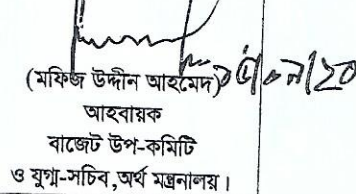 (মফিজ উদ্দীন আহমেদ)
আহবায়ক
বাজেট উপ-কমিটি
ও যুগ্ম-সচিব, অর্থ মন্ত্রনালয়।